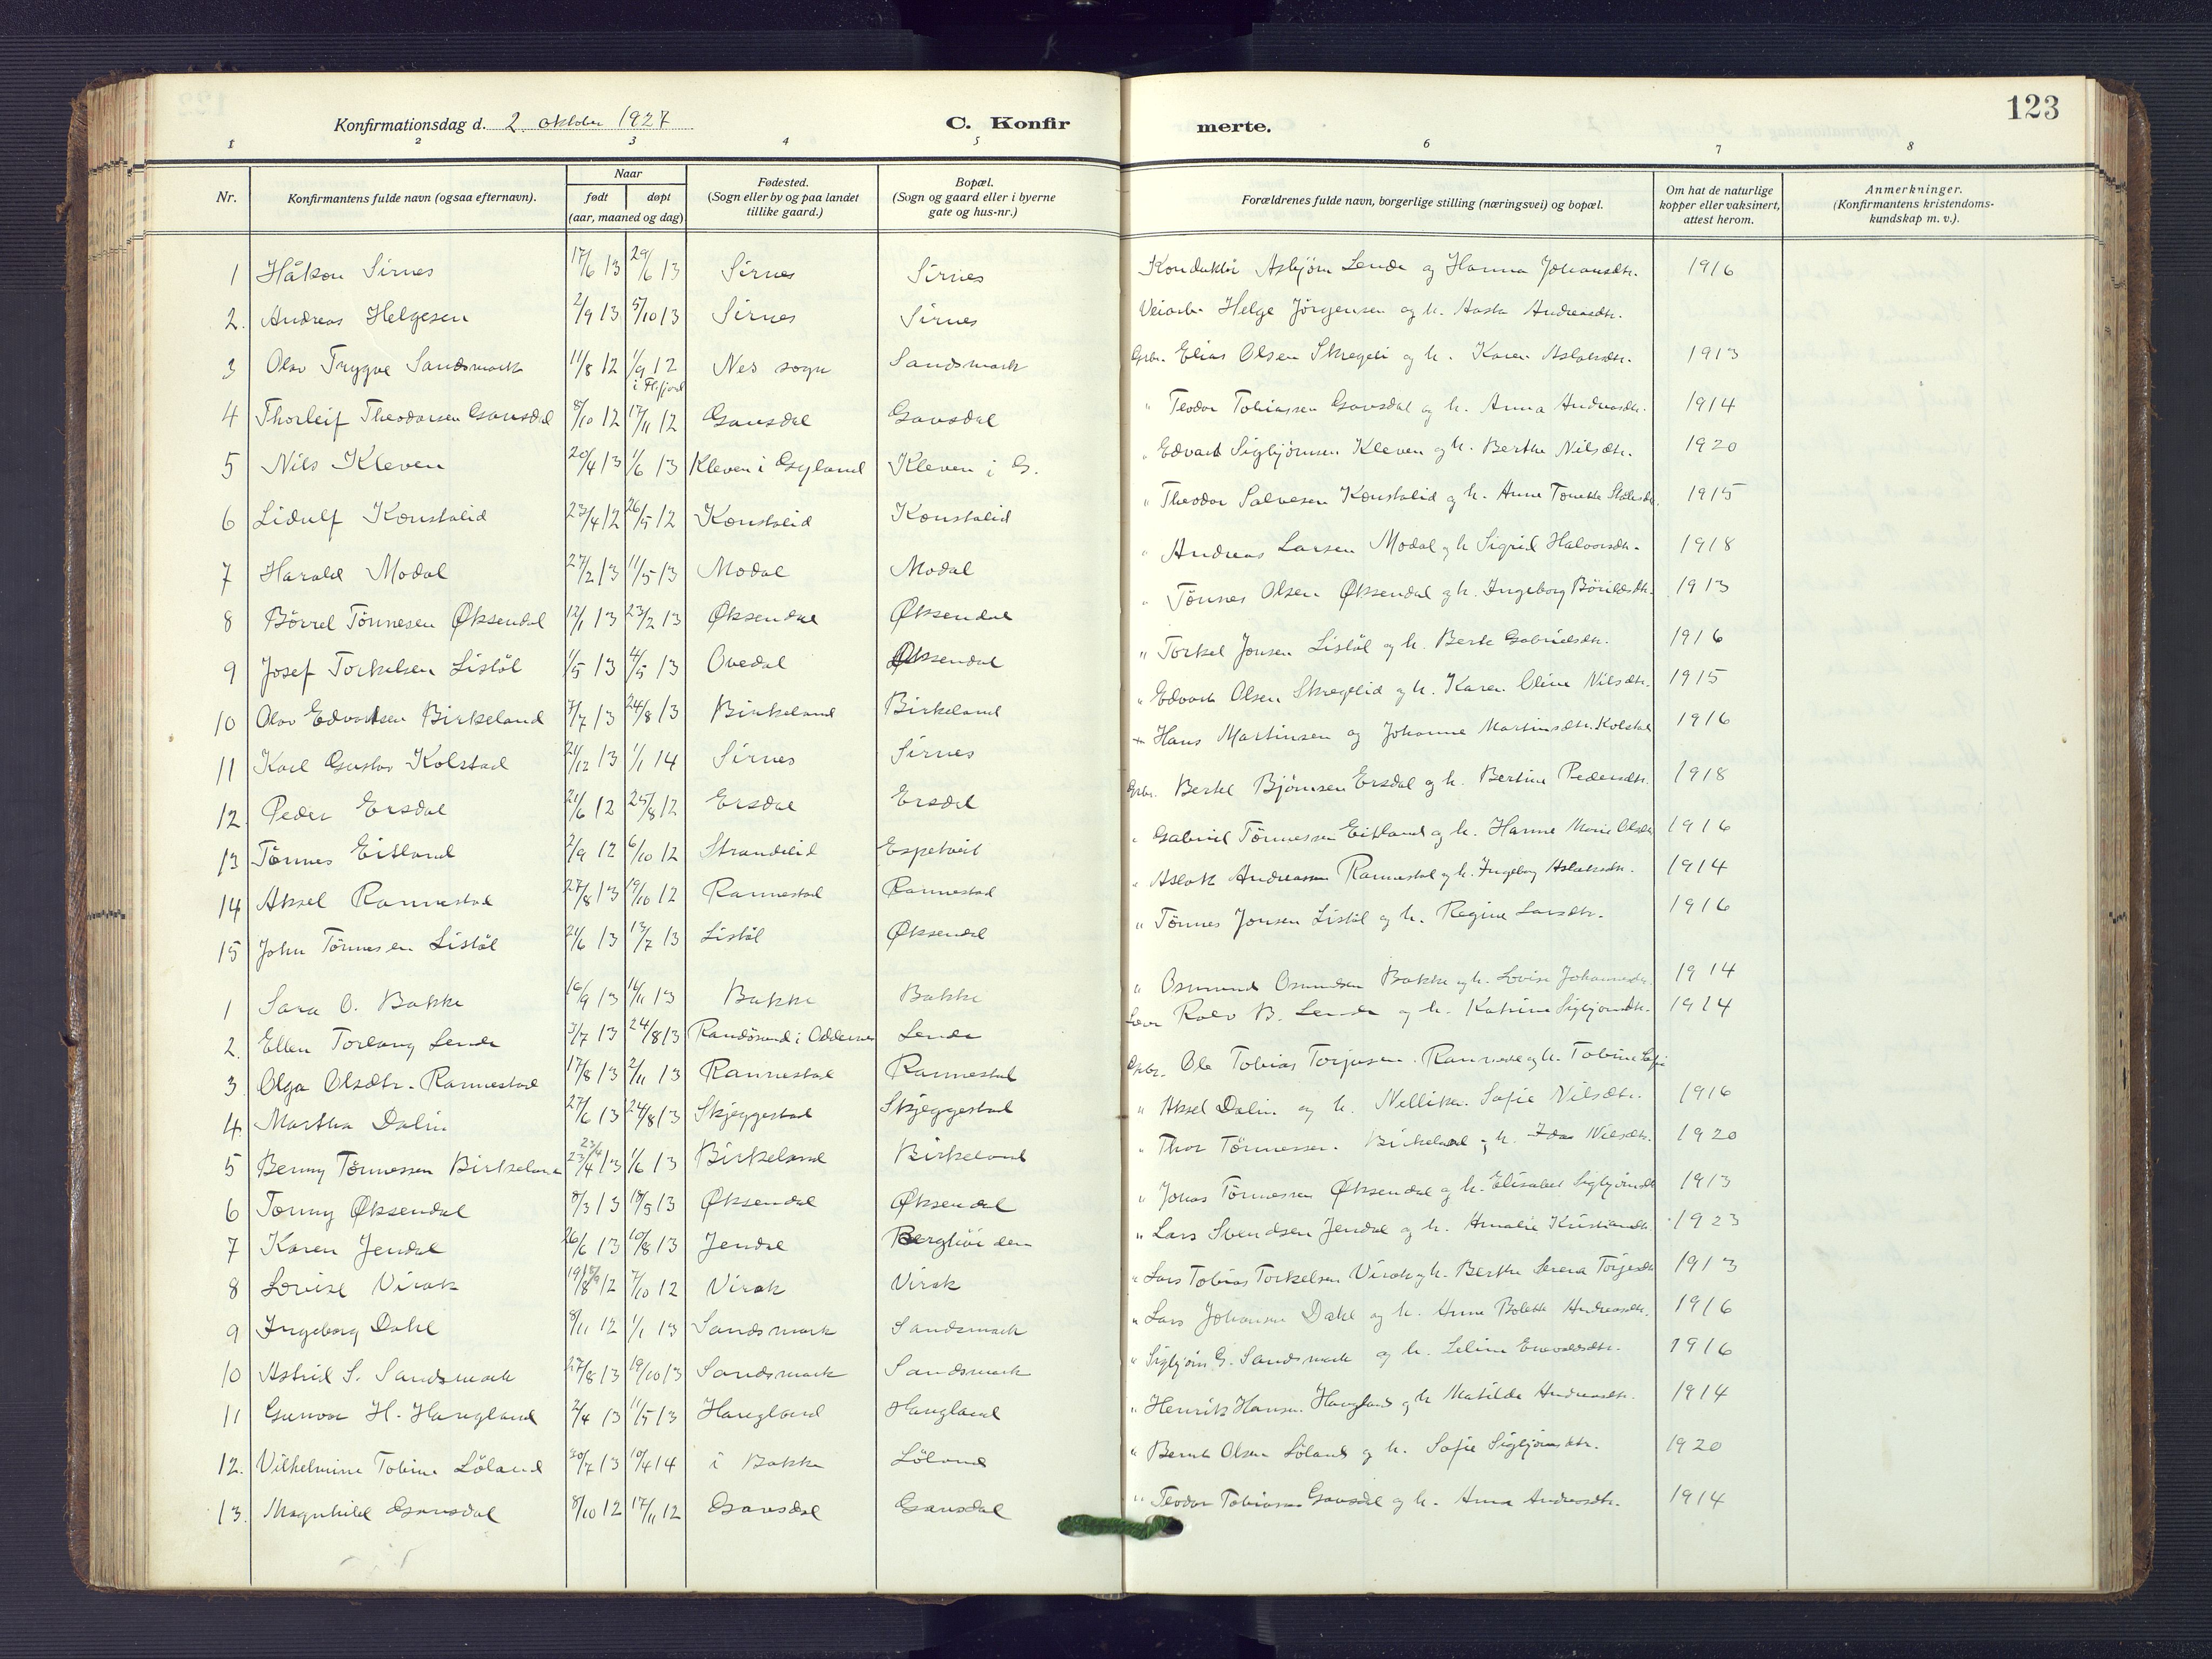 Konfirmationsdag d. 2. oktober 1927 C. Konfirmerte. 123
1 2 3 4 5 6 7 8
Nr. Konfirmantens fulde navn (ogsaa efternavn). Naar født døpt (aar, maaned og dag) Fødested. (Sogn eller by og paa landet tillike gaard.) Bopæl. (Sogn og gaard eller i byerne gate og hus-nr.) Forældrenes fulde navn, borgerlige stilling (næringsvei) og bopæl. Om hat de naturlige kopper eller vaksinert, attest herom. Anmerkninger. (Konfirmantens kristendomskundskap m. v.).
1 Håkon Sirnes 17/6 13 29/6 13 Sirnes Sirnes Konduktör Asbjörn Lende og Hanna Johansdtr. 1916
2. Andreas Helgesen 2/9 13 5/10 13 Sirnes Sirnes Veiarb. Helge Jörgensen og h. Andreasdtr.
3 Olav Trygve Sandsmark 11/8 12 1/9 12 i Fl.fjord Nes sogn Sandsmark Grbr. Elias Olsen Skregeli og h. Karen Aslaksdtr. 1913
4 Thorleif Theodorsen Gausdal 8/10 12 17/11 12 Gausdal Gausdal " Teodor Tobiassen Gausdal og h. Anna Andreasdtr. 1914
5 Nils Kleven 20/4 13 1/6 13 Kleven i Gyland Kleven i G. " Edvart Sigbjörnsen Kleven og h. Berthe Nilsdtr. 1920
6 Lidulf Konstalid 23/4 12 26/5 12 Konstalid Konstalid " Theodor Salvesen Konstalid og h. Anne Tonette 1915
7 Harald Modal 27/2 13 11/5 13 Modal Modal " Andreas Larsen Modal og h Sigrid Halvorsdtr. 1918
8 Börrel Tönnesen Øksendal 12/1 13 23/2 13 Øksendal Øksendal " Tönnes Olsen Øksendal og h. Ingeborg Börildsdtr. 1913
9 Josef Torkelsen Listöl 1/5 13 4/5 13 Ovedal Øksendal " Torkel Jonsen Listöl og h. Berte Gabrielsdtr. 1916
10 Olav Edvartsen Birkeland 7/7 13 24/8 13 Birkeland Birkeland " Edvart Olsen Skregelid og h. Karen Oline Nilsdtr. 1915
11 Karl Gustav Kolstad 21/12 13 1/1 14 Sirnes Sirnes Hans Martinsen og Johanne Martinsdtr. Kolstad 1916
12. Peder Ersdal 21/6 12 25/8 12 Ersdal Ersdal Grbr. Bertel Björnsen Ersdal og h. Bertine Pedersdtr. 1918
13 Tönnes Eitland 2/9 12 6/10 12 Strandelid Espetveit " Gabriel Tönnessen Eitland og h. Hanne Marie Olsdtr 1916
14 Aksel Rannestad 27/8 13 19/10 12 Rannestad Rannestad " Aslak Andreassen Rannestad og h. Ingeborg Aslaksdtr. 1914
15 John Tönnesen Listöl 24/6 13 13/7 13 Listöl Øksendal " Tönnes Jonsen Listöl og h. Regine Larsdtr. 1916
1 Sara O. Bakke 16/9 13 16/11 13 Bakke Bakke " Osmund Osmundsen Bakke og h. Lovise Johannesdtr. 1914
2. Ellen Torlaug Lende 3/7 13 24/8 13 Randösund i Oddernes Lende Rolv B. Lende og h. Katrine Sigbjörnsdtr. 1914
3 Olga Olsdtr. Rannestad 17/8 13 2/11 13 Rannestad Rannestad Grbr. Ole Tobias Torjusen Rannestad og h. Tobine Sofie
4. Martha Dalin 27/6 13 24/8 13 Skjeggestad Skjeggestad " Aksel Dalin og h. Nellike Sofie Nilsdtr. 1916
5 Benny Tönnessen Birkeland 23/4 23/4 13 1/6 13 Birkeland Birkeland " Thor Tönnessen Birkeland og h. Ida Nilsdtr. 1920
6 Tonny Øksendal 8/3 13 18/5 13 Øksendal Øksendal " Jonas Tönnessen Øksendal og h. Elisabet Sigbjörnsdt 1913
7 Karen Jendal 26/6 13 10/8 13 Jendal Berghöiden " Lars Svendsen Jendal og h. Amalie Kristiansdtr. 1923
8 Lovise Virak 19/8 12 7/10 12 Virak Virak " Lars Tobias Torkelsen Virak og h. Berthe Serena Torjesdtr 1913
9 Ingeborg Dahl 8/11 12 1/1 13 Sandsmark Sandsmark " Lars Johansen Dahl og h. Anne Bolette Andreasdtr. 1916
10 Astrid S. Sandsmark 27/8 13 19/10 13 Sandsmark Sandsmark " Sigbjörn G. Sandsmark og h. Enevaldsdtr. 1916
11 Gunvor H. Haugland 2/4 13 11/5 13 Haugland Haugland " Henrik Hansen Haugland og h Matilde Andreasdtr. 1914
12. Vilhelmine Tobine Löland 30/7 13 10/4 14 i Bakke Löland " Bernt Olsen Löland og h. Sofie Sigbjörnsdtr. 1920
13. Magnhild Gausdal 8/10 12 17/11 12 Gausdal Gausdal " Teodor Tobiassen Gausdal og h. Anna Andreasdtr. 1914